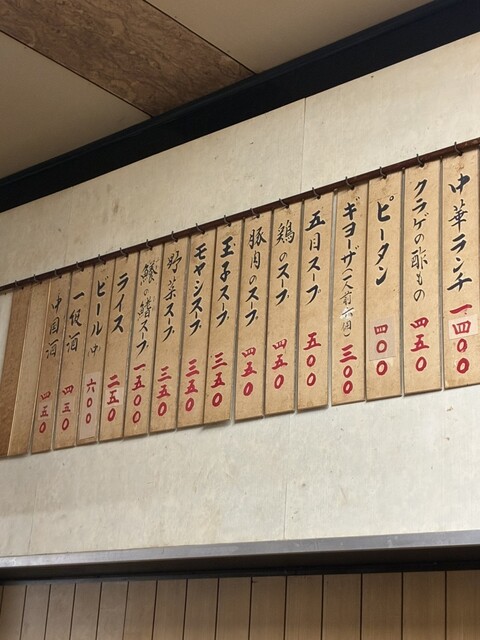 中華ランチ 一四〇〇
クラゲの酢もの 四五〇
ピータン 四〇〇
ギヨーザ(一人前六個) 三〇〇
五目スープ 五〇〇
鶏のスープ 四五〇
豚肉のスープ 四五〇
玉子スープ 三五〇
モヤシスープ 三五〇
野菜スープ 三五〇
鱶の鰭スープ 一五〇〇
ライス 二五〇
ビール 中 六〇〇
一級酒 四三〇
中国酒 四五〇